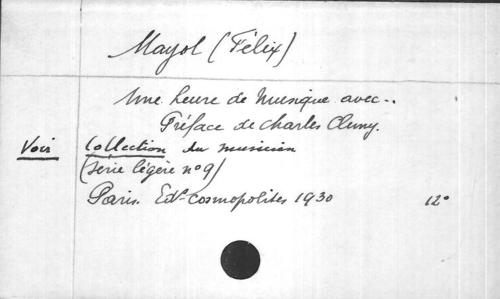 Mayol (Félix)
Une heure de Musique avec..
Préface de Charles Cluny.
Voir Collection du musicien
(série légère nº 9)
Paris. Edns cosmopolites 1930 12º